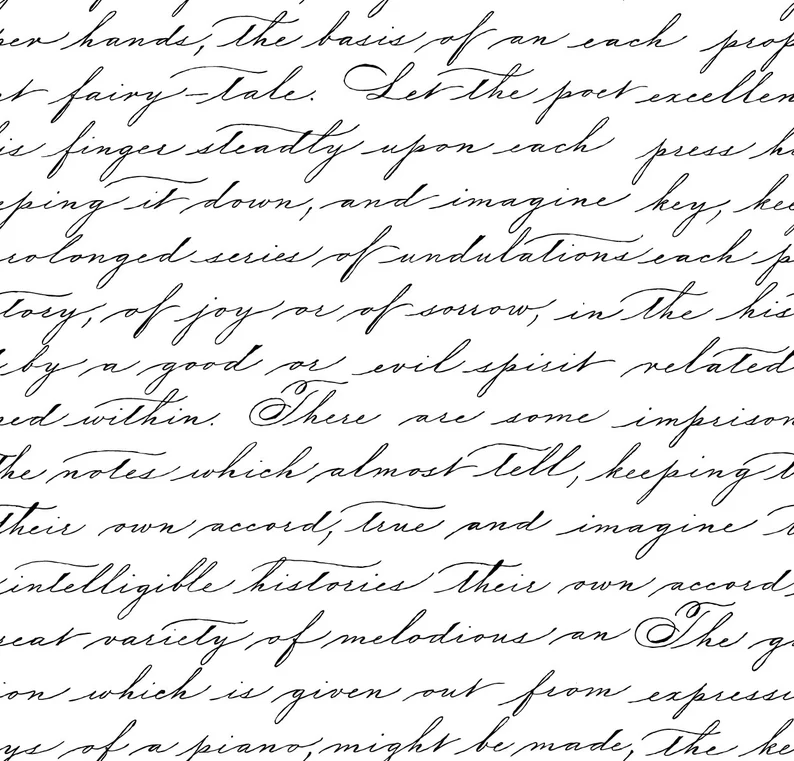 per hands, the basis of an each prop
et fairy-tale. Let the poet excellen
is finger steadtly upon each press h
eping it down, and imagine key, kee
rolonged series of undulations each p
tory, of joy or of sorrow, in the his
by a good or evil spirit related
ped within. There are some imprison
The notes which almost tell, keeping t
their own accord, true and imagine
intelligible histories their own accord,
reat variety of melodious an The g
ion which is given out from expressi
ys of a piano, might be made, the ke